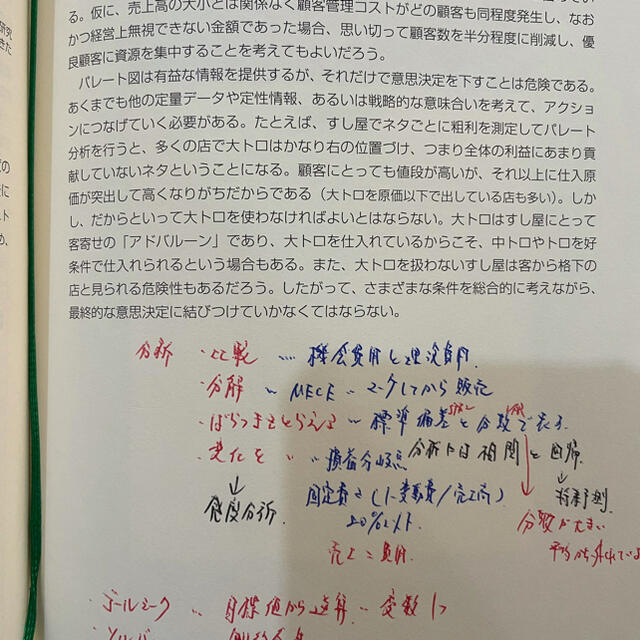 る。仮に、売上高の大小とは関係なく顧客管理コストがどの顧客も同程度発生し、なお
かつ経営上無視できない金額であった場合、思い切って顧客数を半分程度に削減し、優
良顧客に資源を集中することを考えてもよいだろう。
パレート図は有益な情報を提供するが、それだけで意思決定を下すことは危険である。
あくまでも他の定量データや定性情報、あるいは戦略的な意味合いを考えて、アクショ
ンにつなげていく必要がある。たとえば、すし屋でネタごとに粗利を測定してパレート
分析を行うと、多くの店で大トロはかなり右の位置づけ、つまり全体の利益にあまり貢
献していないネタということになる。顧客にとっても値段が高いが、それ以上に仕入原
価が突出して高くなりがちだからである（大トロを原価以下で出している店も多い）。しか
し、だからといって大トロを使わなければよいとはならない。大トロはすし屋にとって
客寄せの「アドバルーン」であり、大トロを仕入れているからこそ、中トロやトロを好
条件で仕入れられるという場合もある。また、大トロを扱わないすし屋は客から格下の
店と見られる危険性もあるだろう。したがって、さまざまな条件を総合的に考えながら、
最終的な意思決定に結びつけていかなくてはならない。
分析 ・比較 … 機会費用と埋没費用
・分解 〃 MECE
・ばらつきをとらえる 〃 標準偏差と分散で表す
・変化を 〃 〃 損益分岐点 分析には相関と回帰
↓ 感度分析 固定費 ↓ 将来予測
分散が大きい
売上＝費用
平均から外れている
・ゴールシーク 〃 目標値から逆算 変数1つ